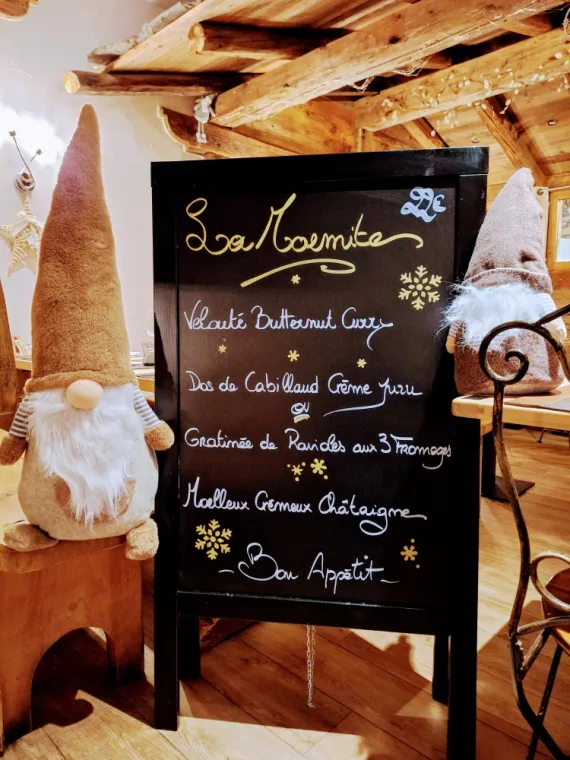 La Marmite
Velouté Butternut Curry
Dos de Cabillaud Crème Yuzu
ou
Gratinée de Ravioles aux 3 Fromages
Moelleux Crémeux Châtaigne
- Bon Appétit -